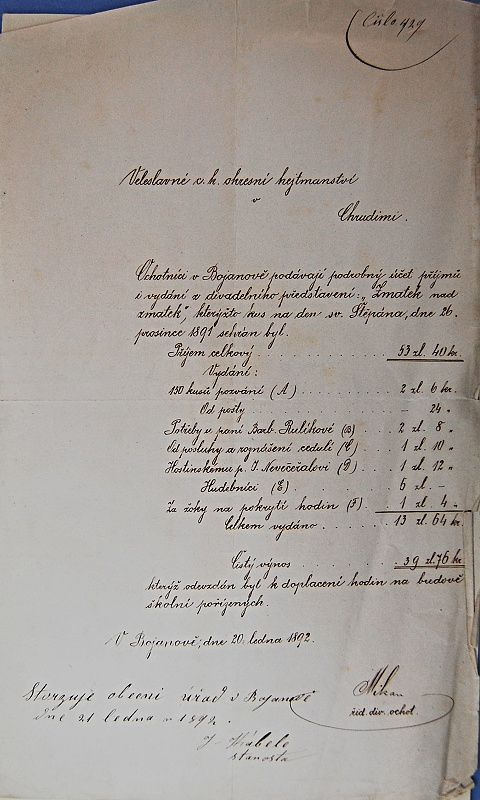 Číslo 429
Veleslavné c. k. okresní hejtmanství
v
Chrudimi.
Ochotníci v Bojanově podávají podrobný účet příjmů
i vydání z divadelního představení: „Zmatek nad
zmatek", kterýžto kus na den sv. Štěpána, dne 26.
prosince 1891 sehrán byl.
Příjem celkový . . . . . . . . . . 53 zl. 40 kr.
Vydání:
150 kusů pozvání (A) . . . . . . . 2 zl. 6 kr.
Od pošty . . . . . . . . . . – 24 „
Potřeby u paní Barb. Rulíkové (B) . . . 2 zl. 8 „
Od posluhy a roznášení cedulí (C) . . . 1 zl. 10 „
Hostinskému p. J. Nevečeřalovi (D) . . . 1 zl. 12 „
Hudebníci (E) . . . . . . . . 6 zl. –
Za žoky na pokrytí hodin (F) . . . . 1 zl. 4 „
Celkem vydáno . . . . . . 13 zl. 64 kr.
Čistý výnos . . . . . . . . 39 zl. 76 kr
kterýž odevzdán byl k doplacení hodin na budově
školní pořízených.
V Bojanově, dne 20. ledna 1892.
Mikan
řid. div. ochot.
Stvrzuje obecní úřad v Bojanově
dne 21 ledna 1892.
starosta